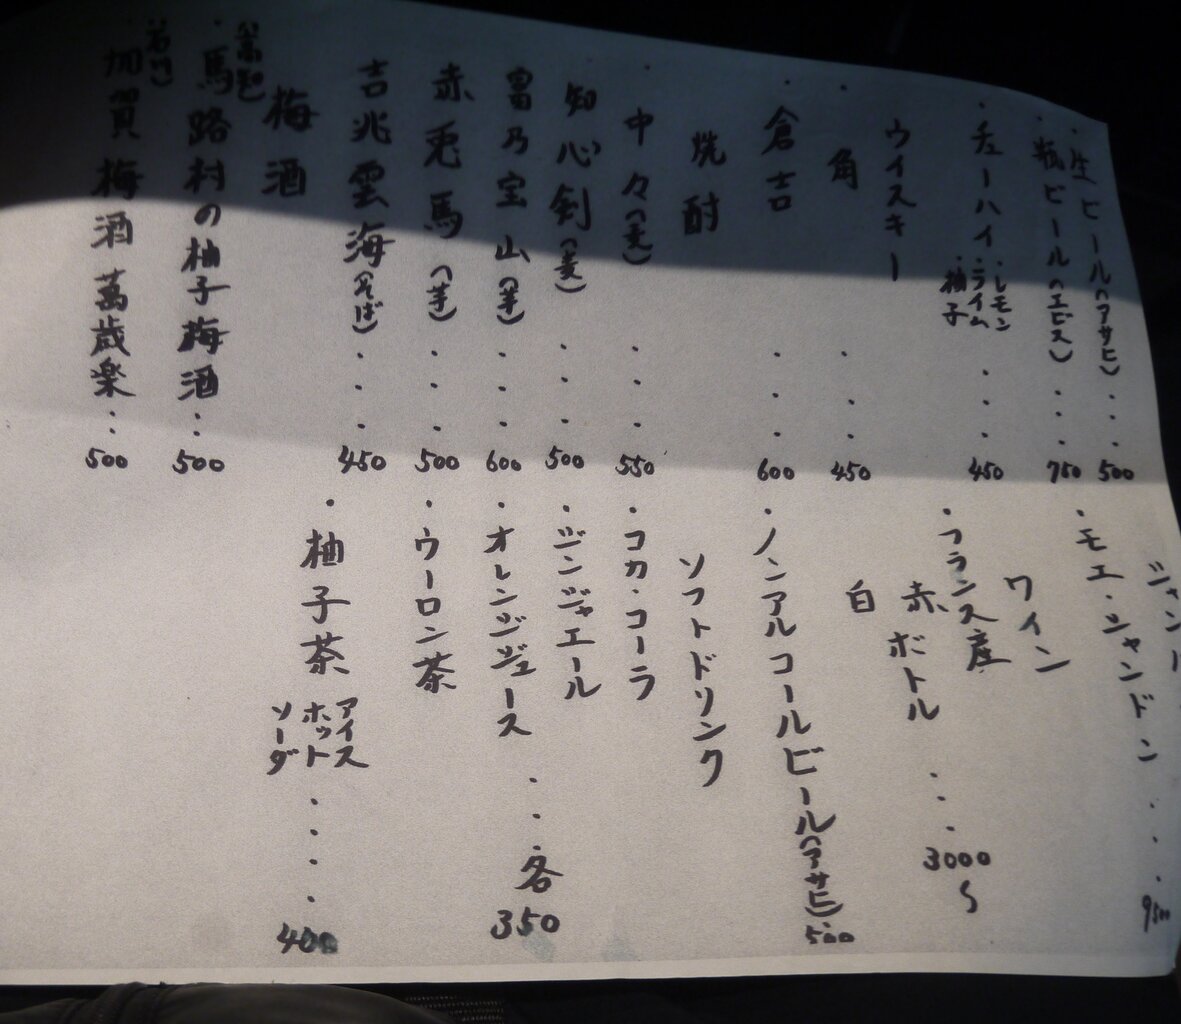 ・生ビール(アサヒ)・・・500
・瓶ビール(エビス)・・・750
・チューハイ・レモン
・ライム
・柚子・・・450
ウイスキー
・角・・・450
・倉吉・・・600
焼酎
・中々(麦)・・・550
知心剣(麦)・・・500
富乃宝山(芋)・・・600
赤兎馬(芋)・・・500
吉兆雲海(そば)・・・450
梅酒
(高知)
・馬路村の柚子梅酒・・500
(石川)
加賀梅酒 萬歳楽・・500
・モエ・シャンドン・・・9500
ワイン
・フランス産
赤ボトル・・・3000〜
白
・ノンアルコールビール(アサヒ)・500
ソフトドリンク
・コカ・コーラ
・ジンジャエール
・オレンジジュース・・・各350
・ウーロン茶
・柚子茶 アイス
ホット・・・・400
ソーダ